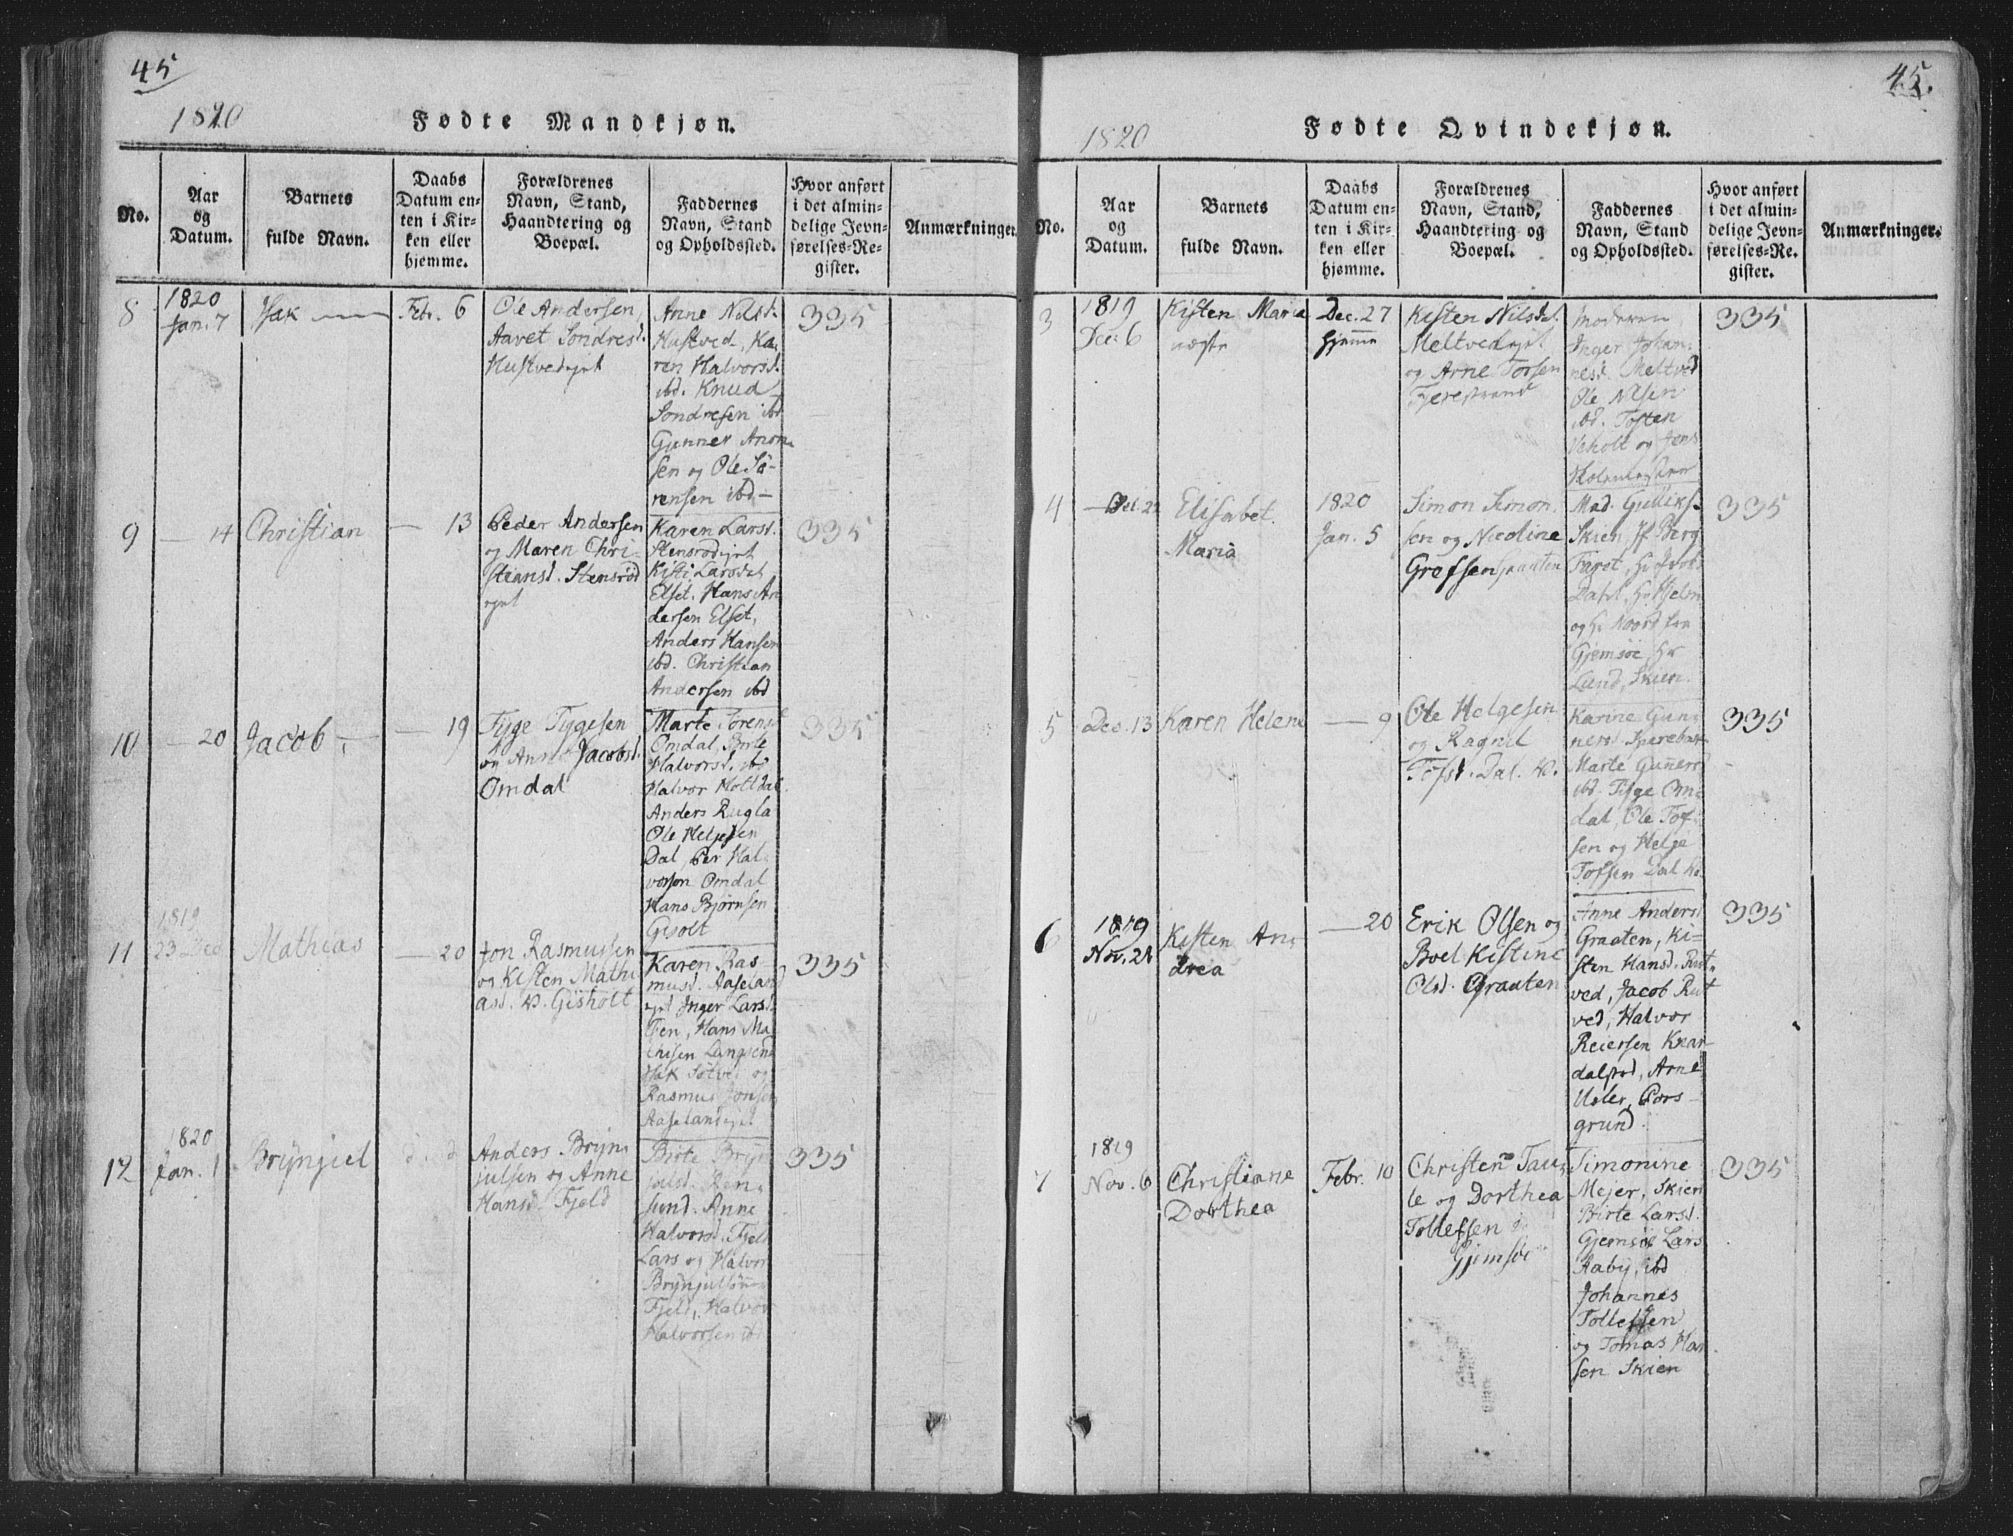 45
1820
Fødte Mandkjøn.
No.
Aar
og
Datum.
Barnets
fulde Navn.
Daabs
Datum en-
ten i Kir-
ken eller
hjemme.
Forældrenes
Navn, Stand,
Haandtering og
Boepæl.
Faddernes
Navn, Stand
og Opholdssted.
Hvor anført
i det almin-
delige Jevn-
førelses-Re-
gister.
Anmærkninger.
8
1820
Jan. 7
Isak
Febr. 6
Ole Andersen
Aavet Sondresd.
Hustvedejet
Anne Nilsd.
Hustved, Ka-
ren Halvorsd.
ibd. Knud
Sondresen ibd
Gunner Anon-
sen og Ole Sö-
rensen ibd.
335
9
14
Christian
13
Peder Andersen
og Maren Chri-
stiansd. Stensröd
ejet
Karen Larsd.
Stensrödejet
Kisti Larsdat
Elset. Hans An
dersen Elset,
Anders Hansen
ibd. Christian
Andersen ibd
335
10
20
Jacob
19
Tyge Tygesen
og Anne Jacobsd.
Omdal
Marte Sörens
Omdal, Birte
Halvorsd. ibd
Halvor Holtdal
Anders Rugla
Ole Helgesen
Dal, Per Hal-
vorson Omdal
Hans Bjørnsen
Gisolt
335
11
1819
23 Dec
Mathias
20
Jon Rasmussen
og Kisten Mathi
asd. Gisholt
Karen Ras
musd. Aaseland
ejet Inger Lars
Ten, Hans Ma
thisen Langsend
Isak Solve og
Rasmus Jonsen
Aaselandejet
335
12
1820
Jan. 1
Brÿngiel
Anders Brÿn-
julsen og Anne
Hansd. Fjeld
Birte Brÿn
julsd.
sund. Anne
Halvorsd. Fjeld
Lars og Halvor
Brÿnjulsönner
Fjeld, Halvor
Halvorsen ibd
335
45.
1820
Fødte Qvindekjøn.
No.
Aar
og
Datum.
Barnets
fulde Navn.
Daabs
Datum en-
ten i Kir-
ken eller
hjemme.
Forældrenes
Navn, Stand,
Haandtering og
Boepæl.
Faddernes
Navn, Stand
og Opholdssted.
Hvor anført
i det almin-
delige Jevn-
førelses-Re-
gister.
Anmærkninger.
3
1819
Dec. 6
Kisten Maria
uægte
Dec. 27
hjemme
Kisten Nilsd.
Meltvedejet
og Arne Torsen
Fjerestrand
moderen
Inger Johan-
nesd. Meltved
Ole Nilsen
ibd. Tosten
Veholt og Jens
335
4
Elisabet
Maria
1820
Jan. 5
Simon Simon-
sen og Nicoline
Grofsen Graaten
Mad. Gulliks.
Skien, Jf Berg
Dahl, Hr Hjelm
og Hr Noord fra
Gjemsöe, Hr
Lund, Skien.
335
5
Dec. 13
Karen Helene
9
Ole Helgesen
og Ragnil
Tofsd. Dal.
Karine Gun-
nersd.
Marte Gunners
ibd. Tyge Om-
dal, Ole Tof-
sen og Helge
Tofsen Dal
335
6
1819
Nov. 21
Kisten An-
drea
20
Erik Olsen og
Boel Kistine
Olsd. Graaten
Anne Andersd
Graaten, Ki-
sten Hansd. Rut-
ved, Jacob Rut
ved, Halvor
Reiersen Knar-
dalstrd, Arne
Usler, Pors-
grund.
335
7
1819
Nov. 6
Christiane
Dorthea
Febr. 10
Christen Tau-
le og Dorthea
Tollefsen
Gjemsöe
Simonine
Mejer, Skien
Birte Larsd.
Gjemsöe Lars
Aaby, ibd
Johannes
Tollefsen
og Tomas Han
sen Skien
335